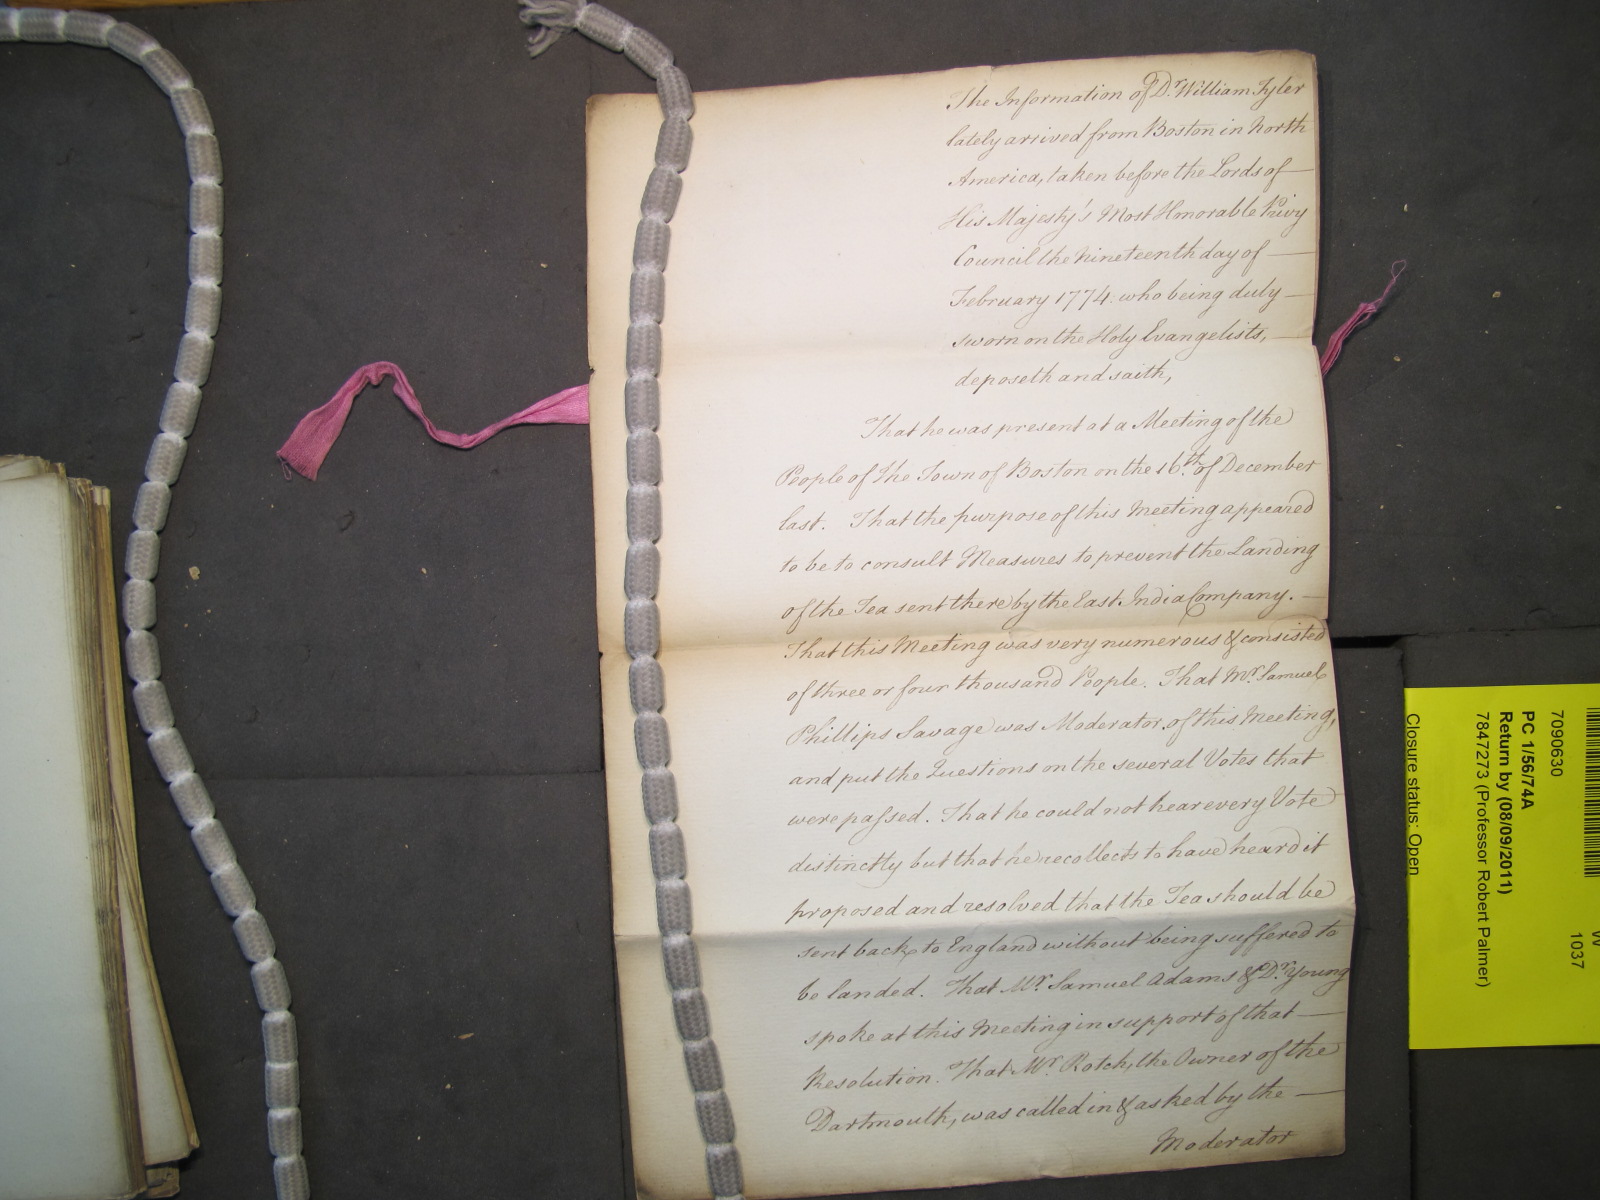 The Information of Dr. William Tyler
lately arrived from Boston in North
America, taken before the Lords of
His Majesty's Most Honorable Privy
Council the Nineteenth day of
February 1774. who being duly
sworn on the Holy Evangelists,
deposeth and saith,
That he was present at a Meeting of the
People of the Town of Boston on the 16th. of December
last. That the purpose of this Meeting appeared
to be to consult Measures to prevent the Landing
of the Tea sent there by the East India Company.
That this Meeting was very numerous & consisted
of three or four thousand People. That Mr. Samuel
Phillips Savage was Moderator of this Meeting,
and put the Questions on the several Votes that
were passed. That he could not hear every Vote
distinctly but that he recollects to have heard it
proposed and resolved that the Tea should be
sent back to England without being suffered to
be landed. That Mr. Samuel Adams & Dr. Young
spoke at this Meeting in support of that
Resolution. That Mr. Rotch, the Owner of the
Dartmouth, was called in & asked by the
Moderator
W
1037
7090630
PC 1/56/74A
Return by (08/09/2011)
7847273 (Professor Robert Palmer)
Closure status: Open